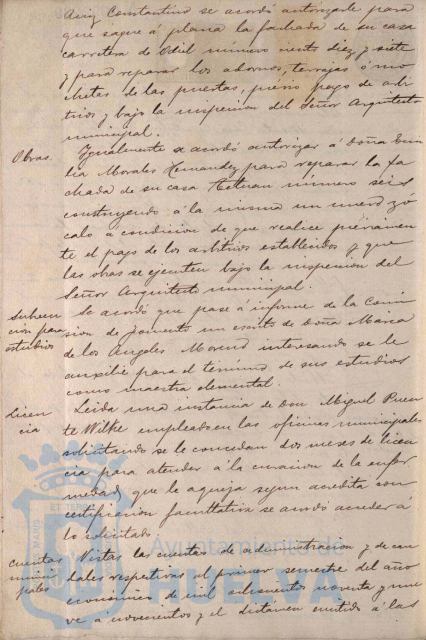 Ruiz Constantino se acordó autorizarle para
que saque á plana la fachada de su casa
carretera de Odiel número ciento diez y siete
y para reparar los adornos, terrajas ó mo
chetas de las puertas, previo pago de arbi
trios y bajo la inspeccion del Señor Arquitecto
municipal.
Obras.
Igualmente se acordó autorizar á Doña Emi
lia Morales Hernandez para reparar la fa
chada de su casa Tetuan número seis
construyendo á la misma un nuevo zó
calo á condicion de que realice préviamen
te el pago de los arbitrios establecidos y que
las obras se ejecuten bajo la inspeccion del
Señor Arquitecto municipal.
Subven
cion para
estudios
Se acordó que pase á informe de la Comi
sion de fomento un escrito de Doña Maria
de los Angeles Moreno interesando se le
auxilie para el término de sus estudios
como maestra elemental.
Licen
cia
Leida una instancia de Don Miguel Puen
te Wilke empleado en las oficinas municipales
solicitando se le concedan dos meses de licen
cia para atender á la curacion de la enfer
medad que le aqueja segun acredita con
certificacion facultativa se acordó acceder á
lo solicitado.
Cuentas
munici
pales
Vistas las cuentas de administracion y de cau
dales respectivas al primer semestre del año
económico de mil ochocientos noventa y nue
ve á novecientos y el dictámen emitido á las
Ayuntamiento de
HUELVA